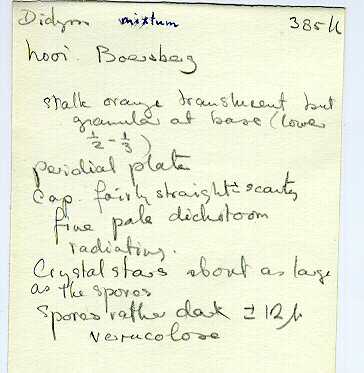 Didym mixtum 3854
hooi. Boersberg
stalk orange translucent but
granular at base (lower
1/2 - 1/3)
peridial plate
Cap. fairly straight ± scanty
fine pale dichotoom
radiating.
Crystal stars about as large
as the spores
Spores rather dark ± 12 µ
verrucolose